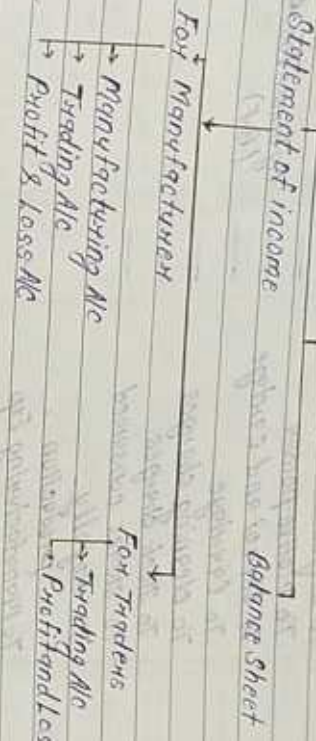 Statement of income
Balance Sheet
For Manufacturer
Manufacturing A/c
Trading A/c
Profit & Loss A/c
For Traders
Trading A/c
Profit and Los